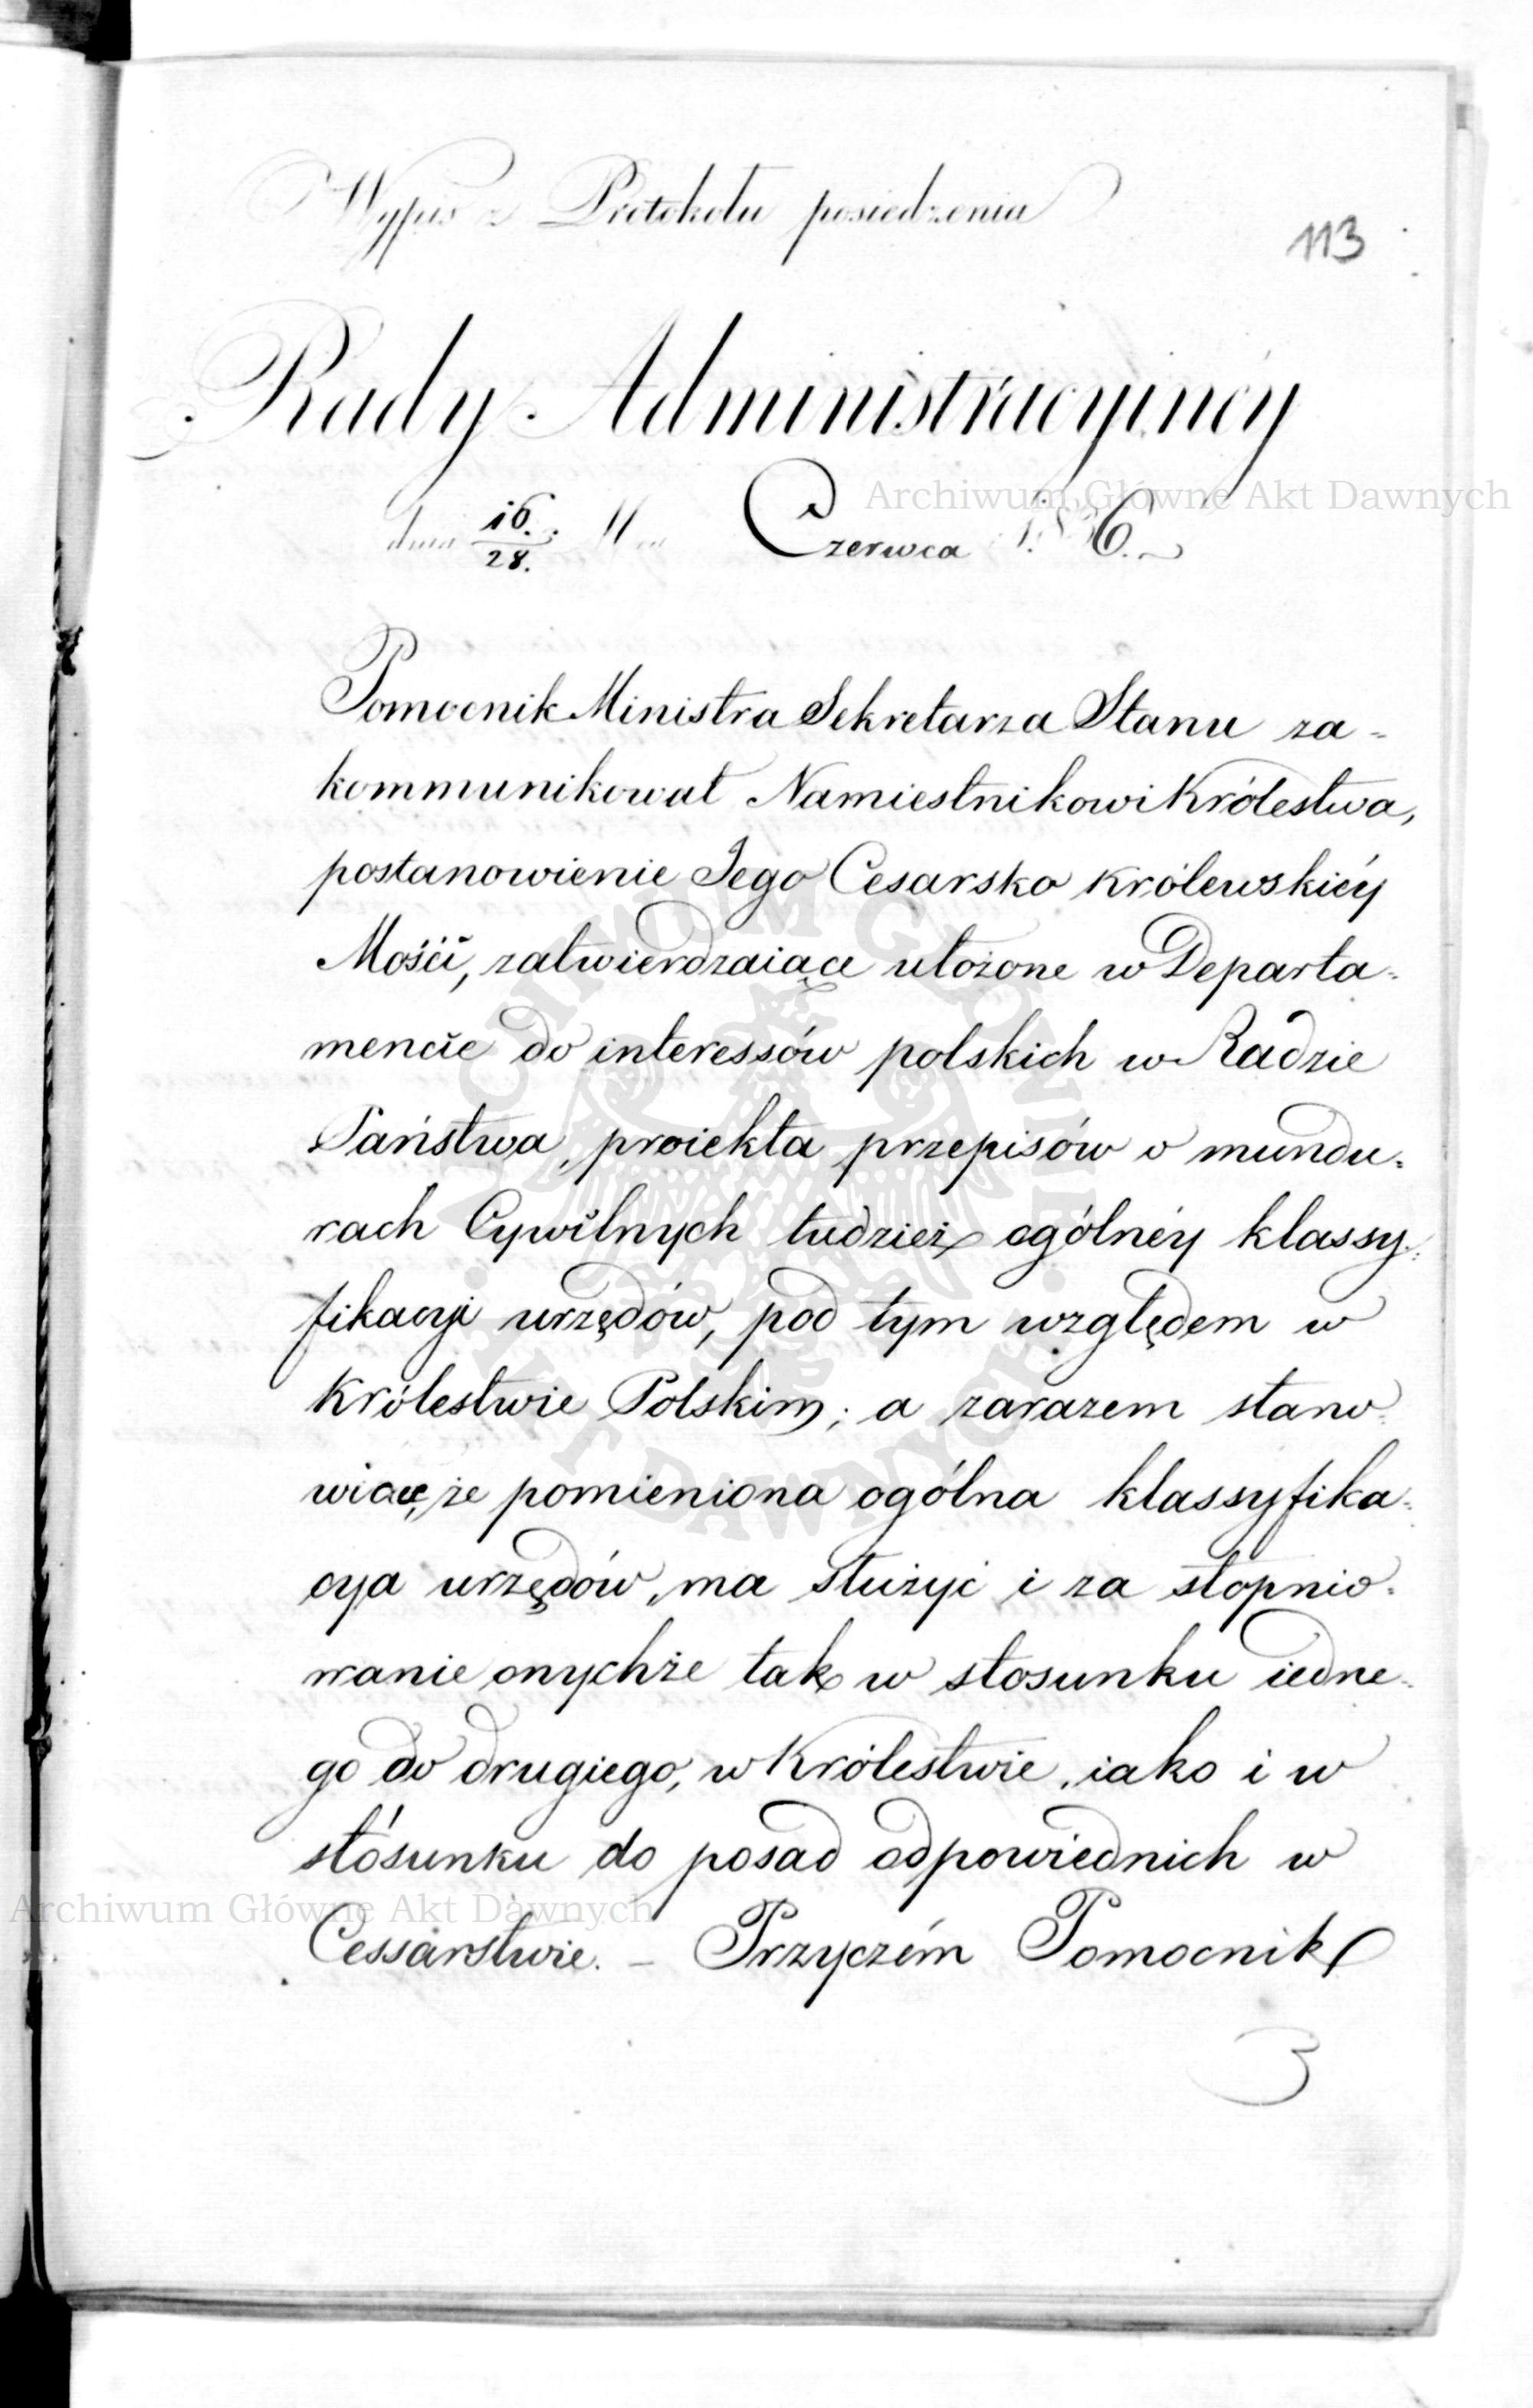 Wypis z Protokołu posiedzenia
113
Rady Administracyiney
Archiwum Główne Akt Dawnych
dnia 16./28. M ca Czerwca 1836.
Pomocnik Ministra Sekretarza Stanu za-
kommunikował Namiestnikowi Królestwa,
postanowienie Jego Cesarsko Królewskiéy
Mości, zatwierdzaiące ułożone w Departa-
mencie do interessów polskich w Radzie
Państwa, proiekta przepisów o mundu-
rach Cywilnych tudzież ogólnéy klassy-
fikacyi urzędów, pod tym względem w
Królestwie Polskim; a zarazem stano-
wiące, że pomieniona ogólna klassyfika-
cya urzędów, ma służyć i za stopnio-
wanie onychże tak w stosunku iedne-
go do drugiego, w Królestwie, iako i w
stósunku do posad odpowiednich w
Archiwum Główne Akt Dawnych
Cessarstwie. – Przyczém Pomocnik
ARCHIWUM GŁÓWNE AKT DAWNYCH